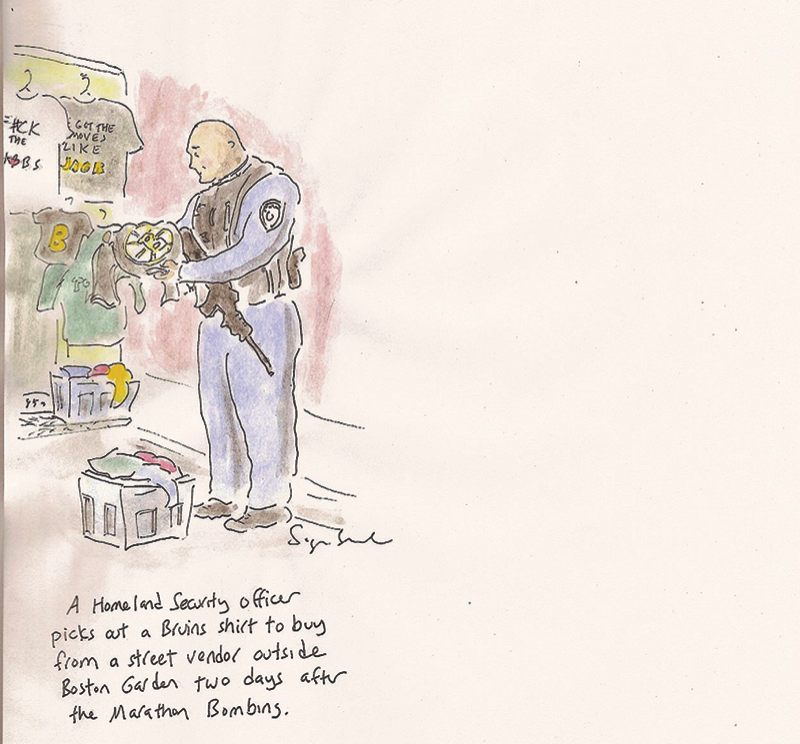 F#CK
THE
I GOT THE
MOVES
LIKE
JAGR
B
A Homeland Security officer
picks out a Bruins shirt to buy
from a street vendor outside
Boston Garden two days after
the Marathon Bombing.